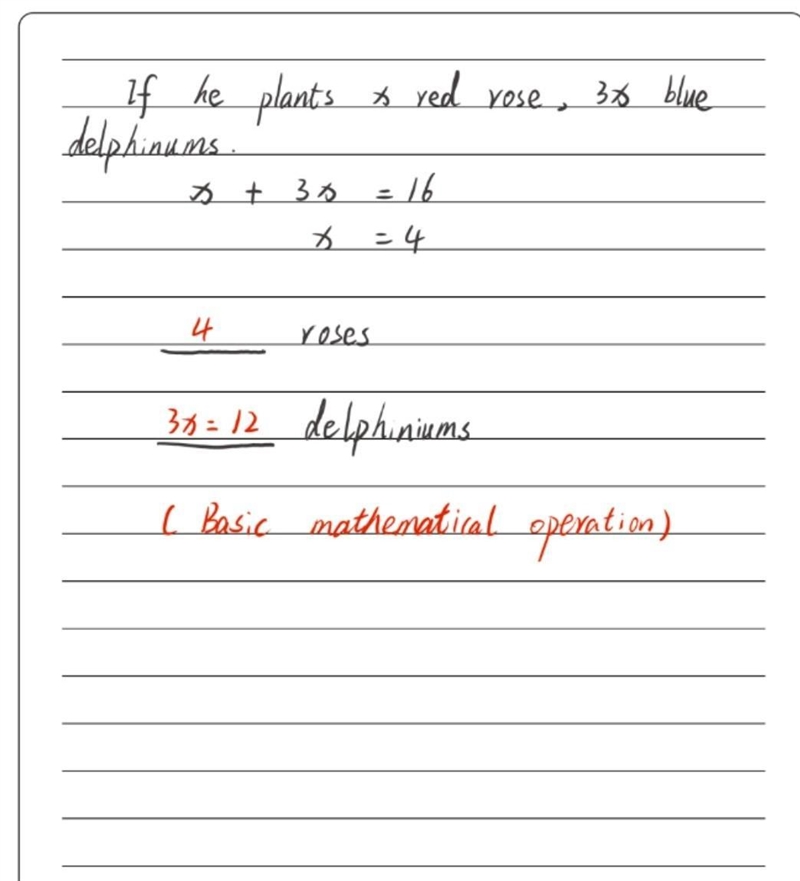 If he plants x red rose, 3x blue
delphinums.
x + 3x = 16
x = 4
4 roses
3x = 12 delphiniums
( Basic mathematical operation)